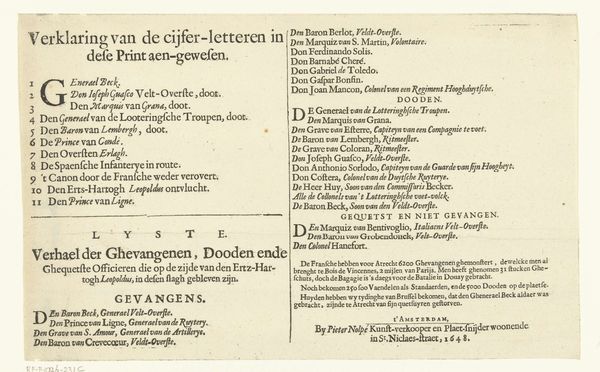 Verklaring van de cijfer-letteren in
dese Print aen-gewesen.
1 GEnerael Beck.
2 Don Ioseph Guasco Velt-Overste, doot.
3 Den Marquis van Grana, doot.
4 Den Generael van de Looteringsche Troupen, doot.
5 Den Baron van Lembergh, doot.
6 De Prince van Condé.
7 Den Oversten Erlagh.
8 De Spaensche Infanterye in route.
9 't Canon door de Fransche weder verovert.
10 Den Erts-Hartogh Leopoldus ontvlucht.
11 Den Prince van Ligne.
LYSTE.
Verhael der Ghevangenen, Dooden ende
Ghequetste Officieren die op de zijde van den Ertz-Har-
togh Leopoldus, in desen slagh gebleven zijn.
GEVANGENS.
DEn Baron Beck, Generael Velt-Overste.
Den Prince van Ligne, Generael van de Ruytery.
Den Grave van S. Amour, Generael van de Artillerye.
Den Baron van Crevecœur, Veldt-Overste.
Den Baron Berlot, Veldt-Overste.
Den Marquiz van S. Martin, Voluntaire.
Don Ferdinando Solis.
Don Barnabé Cheré.
Don Gabriel de Toledo.
Don Gaspar Bonfin.
Don Joan Mancon, Colonel van een Regiment Hooghduytsche.
DOODEN.
DE Generael van de Lotteringhsche Troupen.
Den Marquis van Grana.
Den Grave van Esterre, Capiteyn van een Compagnie te voet.
De Baron van Lembergh, Ritmeester.
De Grave van Celoran, Ritmeester.
Don Joseph Guasco, Veldt-Overste.
Don Anthonio Sorlodo, Capiteyn van de Guarde van sijn Hoogheyt.
Don Costera, Colonel van de Duytsche Ruyterye.
De Heer Huy, Soon van den Commissuris Becker.
Alle de Collonels van 't Lotteringhsche voet-volck.
De Baron Beck, Soon van den Veldt-Overste.
GEQUETST EN NIET GEVANGEN.
DEn Marquiz van Bentivoglio, Italiaens Velt-Overste.
Den Baron van Grobendonck, Velt-Overste.
Den Colonel Hanefort.
De Fransche hebben voor Atrecht 6200 Ghevangenen ghemonstert, dewelcke men al
brenght te Bois de Vincennes, 2 mijlen van Parijs. Men heeft ghenomen 31 stocken Ghe-
schuts, doch de Bagagie is 's daeghs voor de Batalie in Douay gebracht.
Noch bekomen 250 soo Vaendelen als Standaerden, ende 5000 Dooden op de plaetse.
Huyden hebben wy tydinghe van Brussel bekomen, dat den Gheneraal Beck aldaer was
gebracht, zijnde te Atrecht van sijn quetsuyren gestorven.
t'AMSTERDAM,
By Pieter Nolpé Kunst-verkooper en Plaet-snijder woonende
in St. Niclaes-straet, 1648.